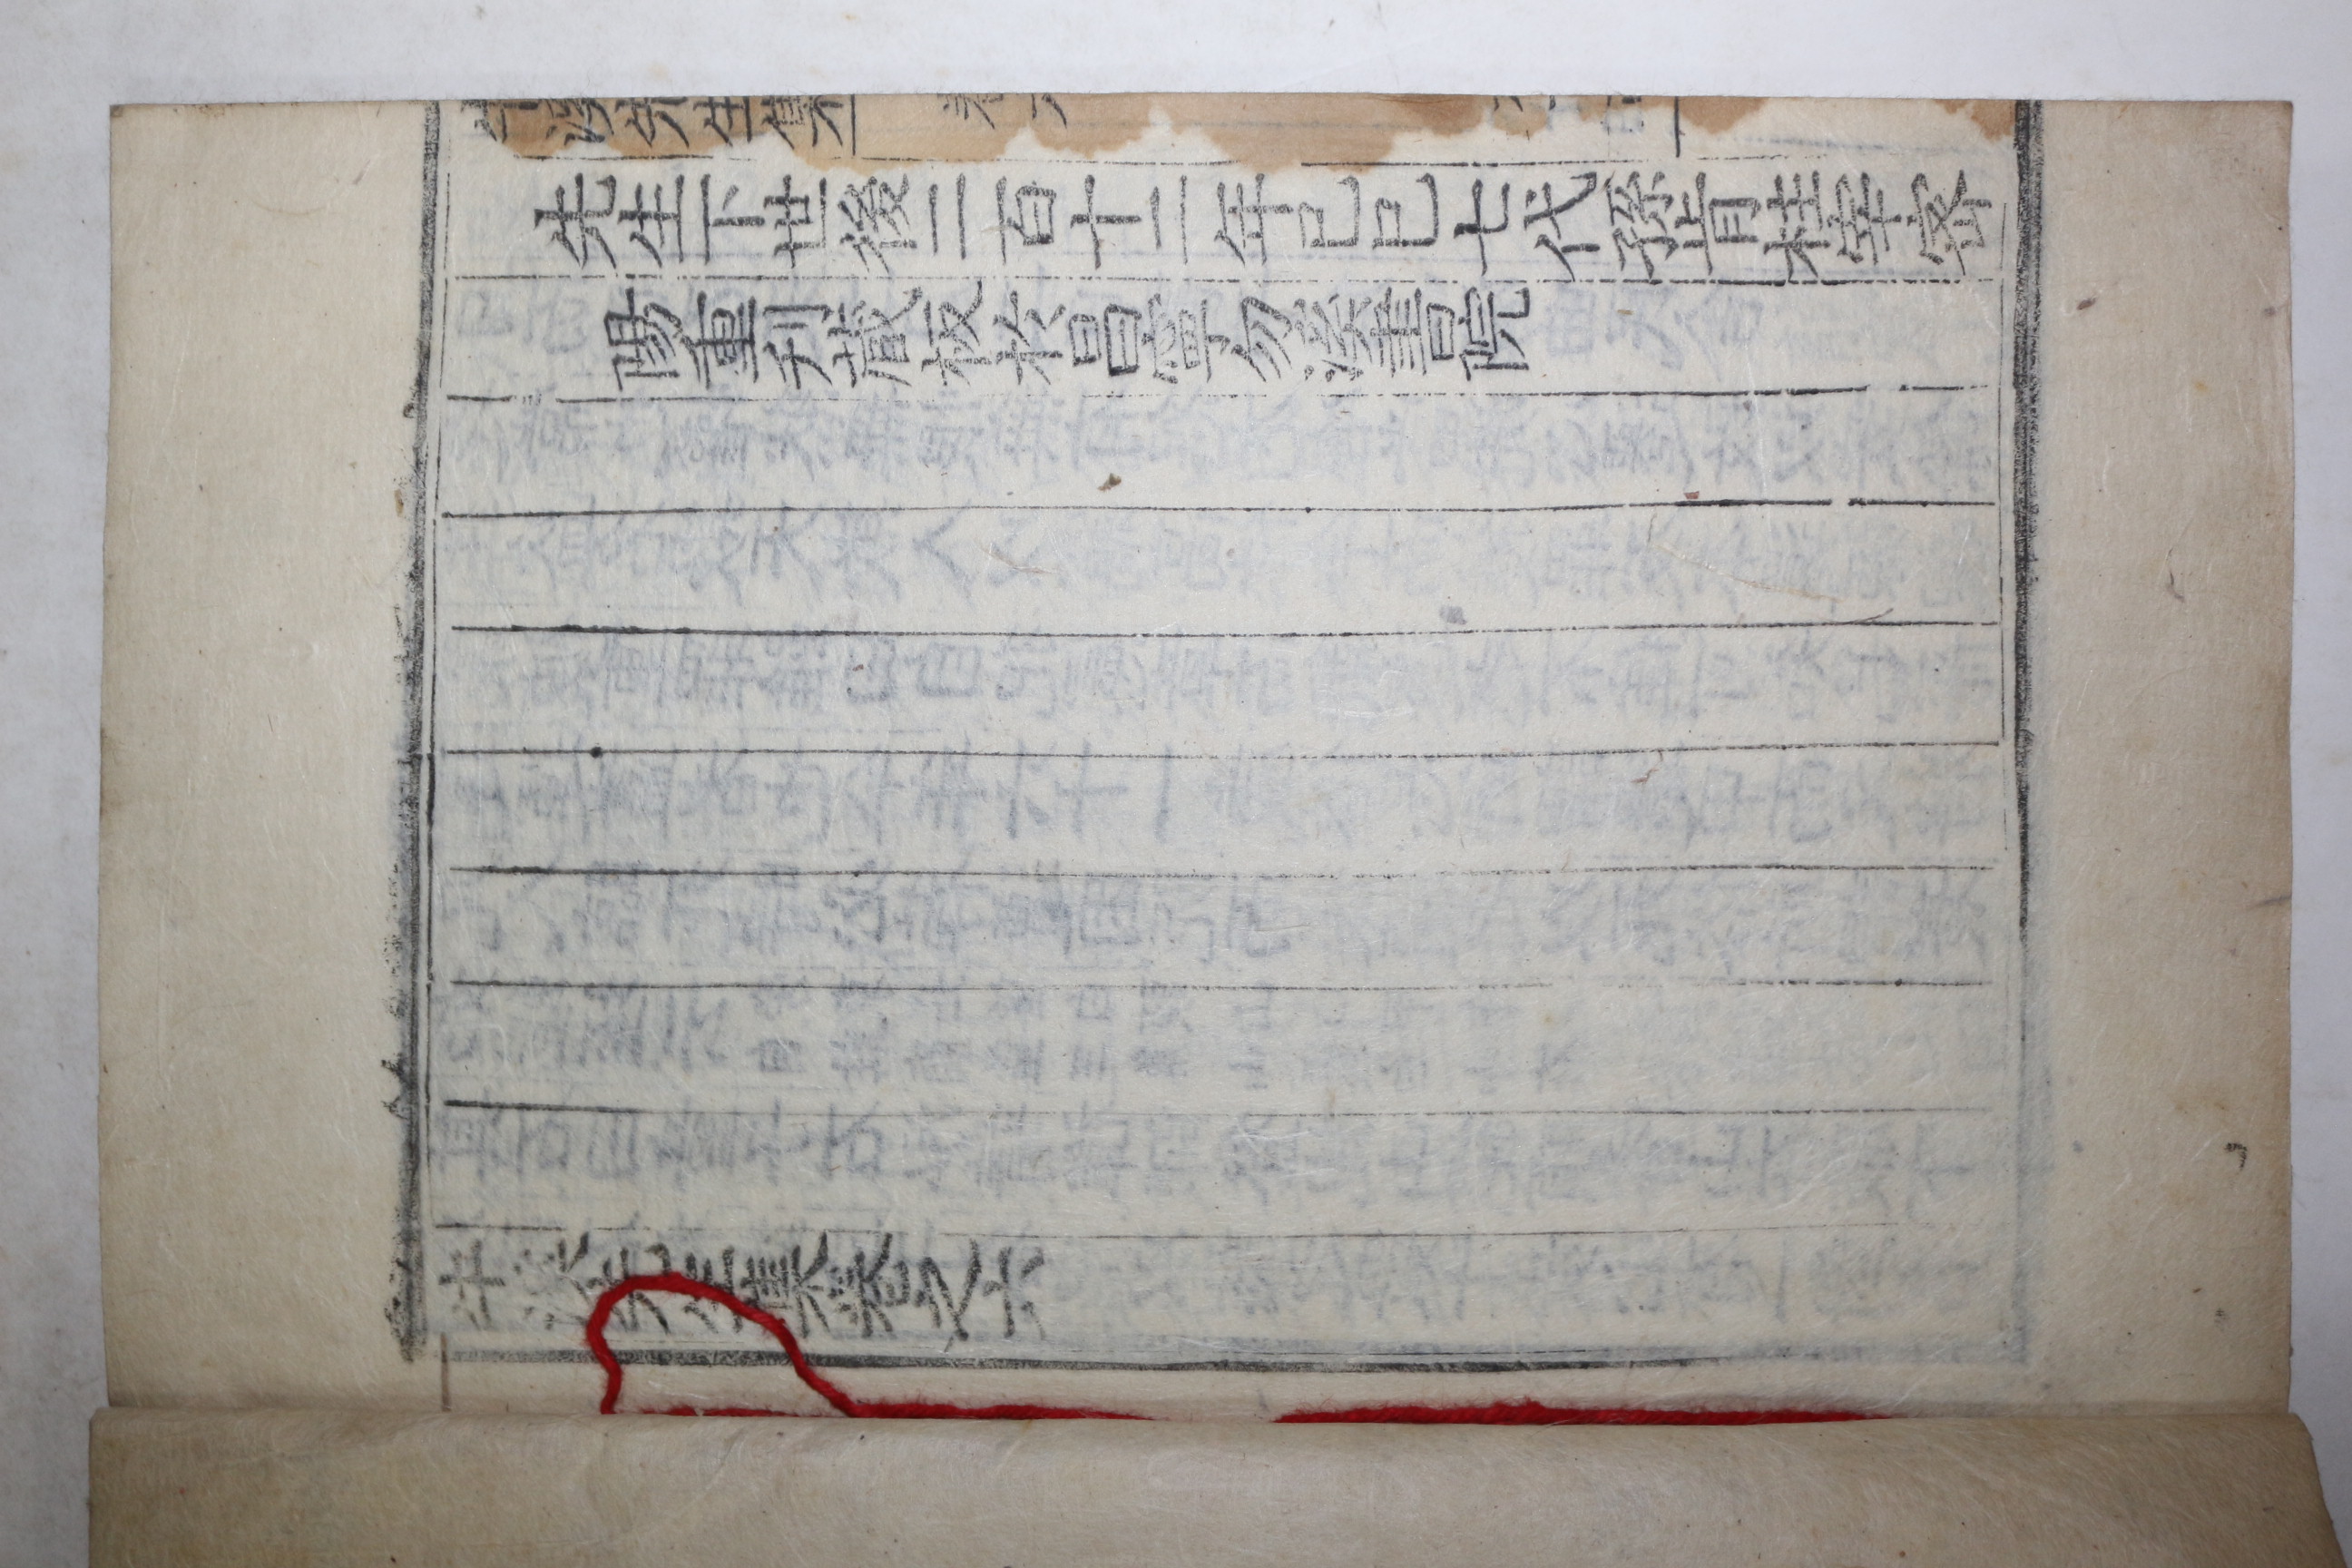 牛溪先生集
卷六
先生下世後二百十二年己巳七代孫肯柱宰密
陽重刋蔵板於昌寧勿溪書院
牛溪先生集卷之六